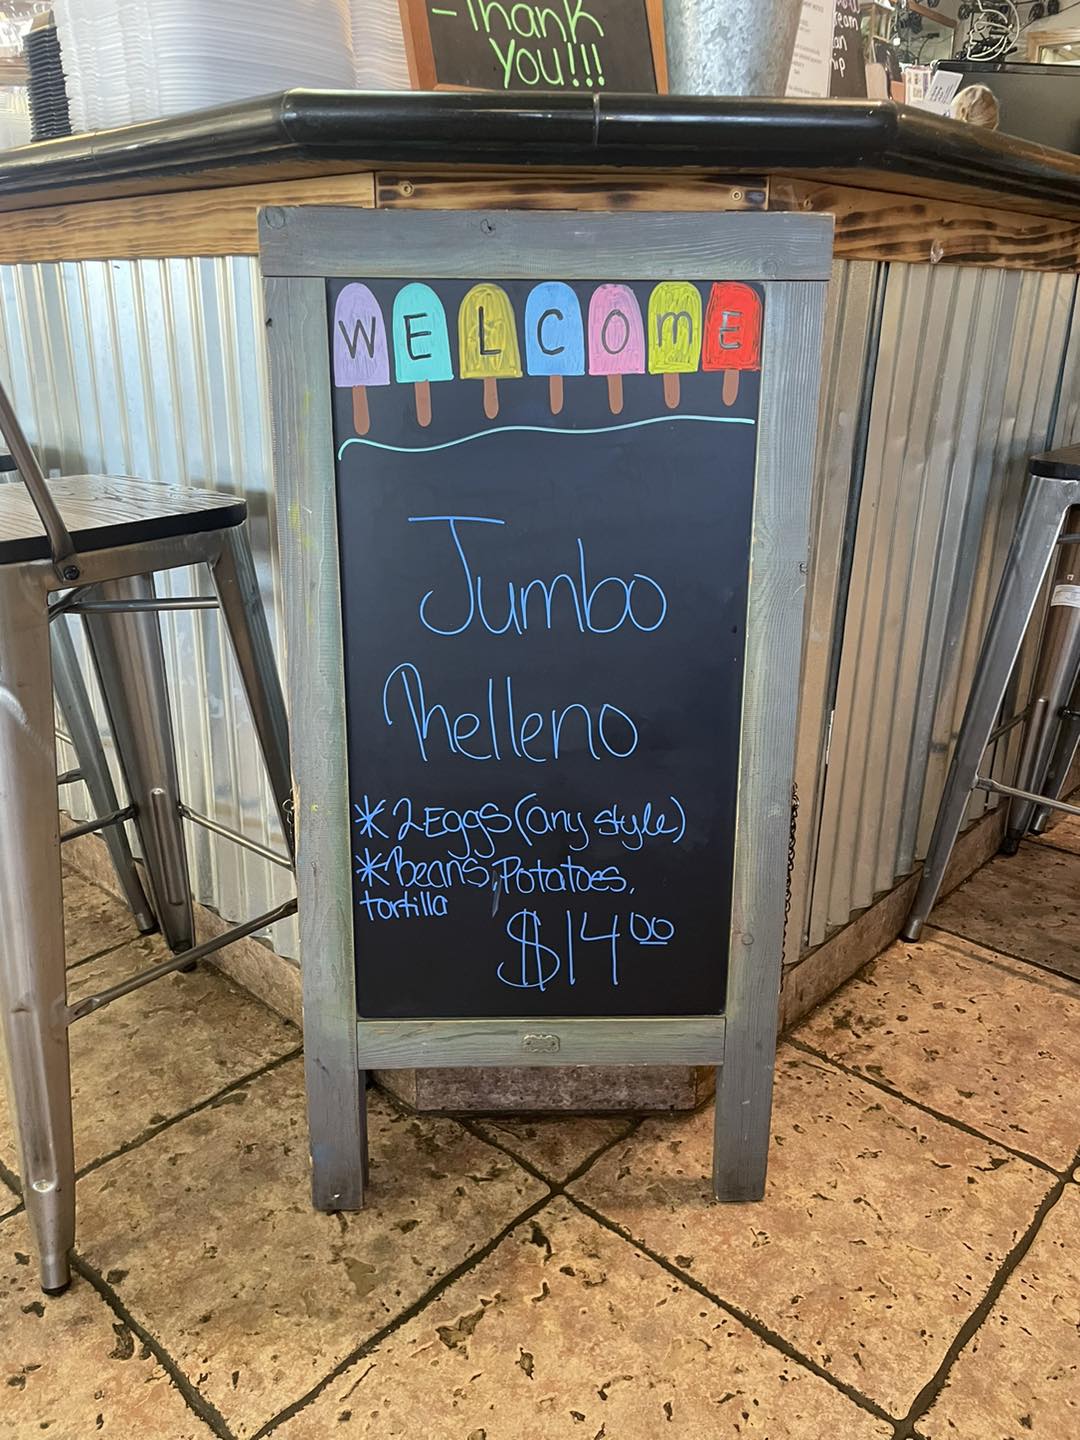 -Thank
you!!!
WELCOME
Jumbo
Rhelleno
*2Eggs (any style)
*Beans, Potatoes,
tortilla
$14⁰⁰